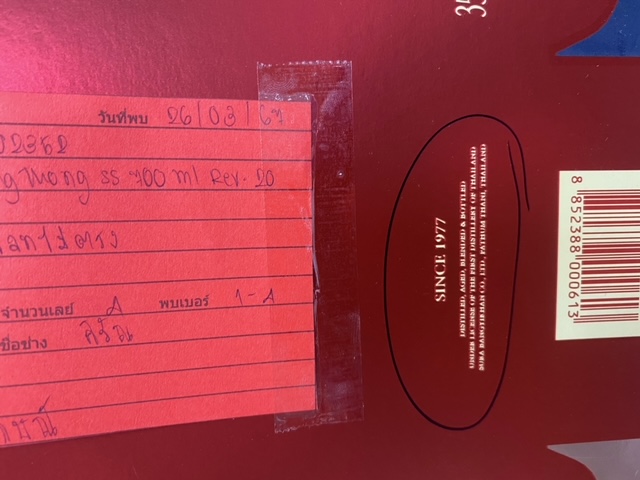 วันที่พบ 26/03/67
02352
ng Thong SS 700 ml Rev. 20
จำนวนเลย์ A พบเบอร์ 1-A
ชื่อช่าง
35
SINCE 1977
DISTILLED, AGED, BLENDED & BOTTLED
UNDER LICENSE OF THE FIRST DISTILLERY OF THAILAND
SURA BANGYIKHAN CO., LTD., PATHUM THANI, THAILAND
8 852388 000613